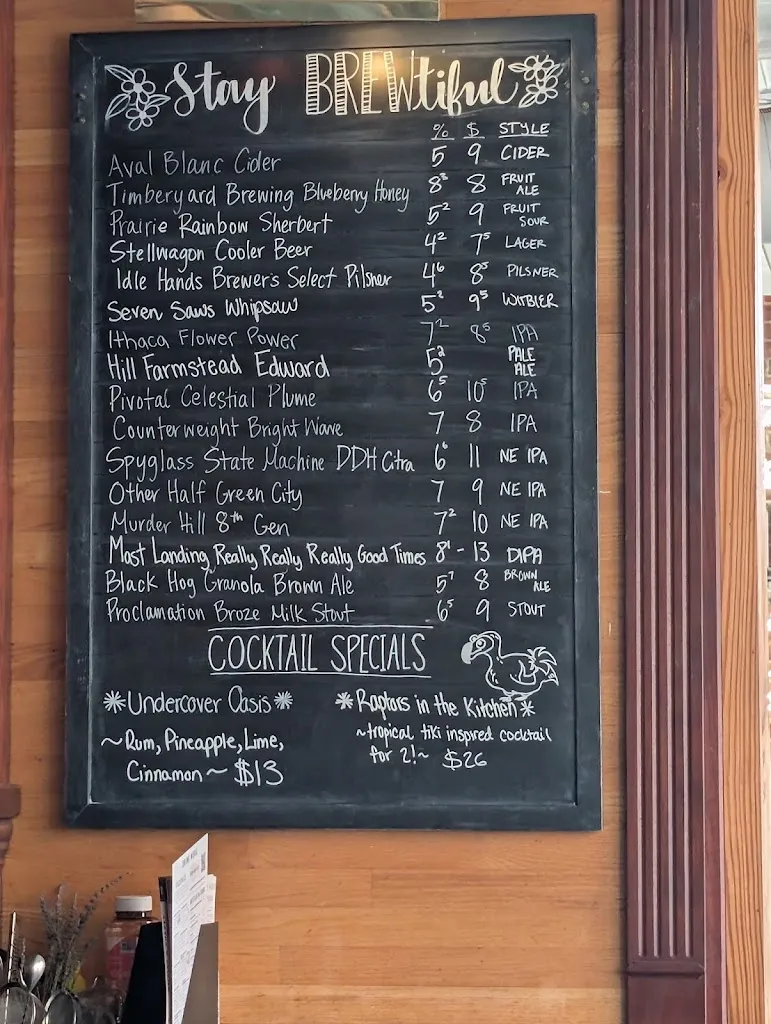 Stay BREWtiful
% $ STYLE
Aval Blanc Cider 5 9 CIDER
Timberyard Brewing Blueberry Honey 8³ 8 FRUIT ALE
Prairie Rainbow Sherbert 5² 9 FRUIT SOUR
Stellwagon Cooler Beer 4² 7⁵ LAGER
Idle Hands Brewer's Select Pilsner 4⁶ 8⁵ PILSNER
Seven Saws Whipsaw 5² 9⁵ WITBIER
Ithaca Flower Power 7² 8⁵ IPA
Hill Farmstead Edward 5² PALE ALE
Pivotal Celestial Plume 6⁵ 10⁵ IPA
Counterweight Bright Wave 7 8 IPA
Spyglass State Machine DDH Citra 6⁶ 11 NE IPA
Other Half Green City 7 9 NE IPA
Murder Hill 8th Gen 7² 10 NE IPA
Mast Landing Really Really Really Good Times 8¹ - 13 DIPA
Black Hog Granola Brown Ale 5⁷ 8 BROWN ALE
Proclamation Broze Milk Stout 6⁵ 9 STOUT
COCKTAIL SPECIALS
*Undercover Oasis*
~Rum, Pineapple, Lime,
Cinnamon~ $13
*Raptors in the Kitchen*
~tropical tiki inspired cocktail
for 2!~ $26